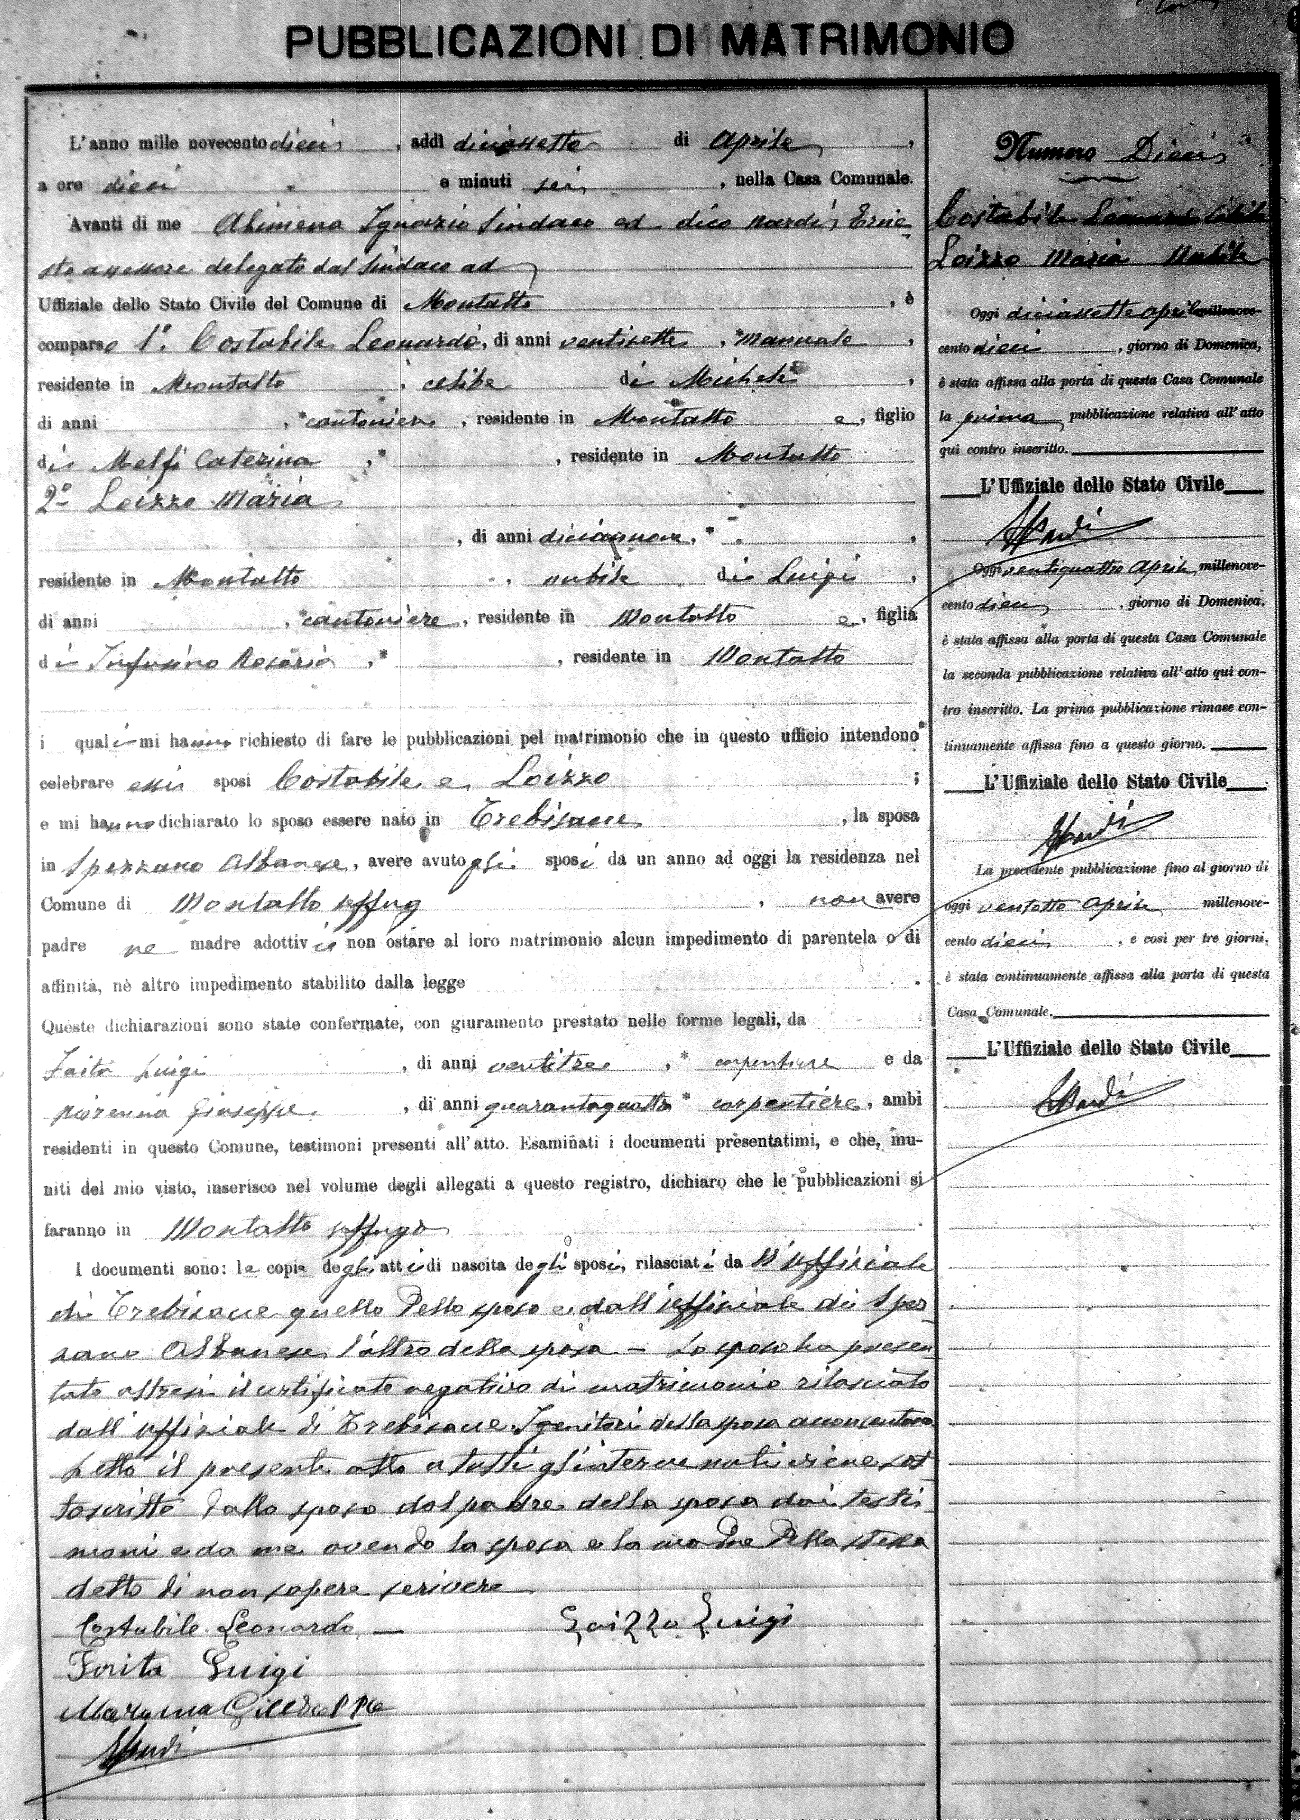 PUBBLICAZIONI DI MATRIMONIO
L'anno mille novecento dieci, addì diciassette di Aprile,
a ore dieci e minuti sei, nella Casa Comunale.
Avanti di me Alimena Ignazio Sindaco ed dico Nardi Erne-
sto assessore delegato dal Sindaco ad
Uffiziale dello Stato Civile del Comune di Montalto, è
comparso 1°. Costabile Leonardo, di anni ventisette, *manuale,
residente in Montalto, celibe di Michele,
di anni , *cantoniere, residente in Montalto e, figlio
di Melfi Caterina ,* , residente in Montalto
2° Loizzo Maria
, di anni diciannove, * ,
residente in Montalto, nubile di Luigi,
di anni , *cantoniere, residente in Montalto e, figlia
di Infusino Rosaria ,* , residente in Montalto
i quali mi hanno richiesto di fare le pubblicazioni pel matrimonio che in questo ufficio intendono
celebrare essi sposi Costabile e Loizzo ;
e mi hanno dichiarato lo sposo essere nato in Trebisacce, la sposa
in Spezzano Albanese, avere avuto gli sposi da un anno ad oggi la residenza nel
Comune di Montalto Uffug, non avere
padre ne madre adottivi e non ostare al loro matrimonio alcun impedimento di parentela o di
affinità, nè altro impedimento stabilito dalla legge .
Queste dichiarazioni sono state confermate, con giuramento prestato nelle forme legali, da
Luigi, di anni ventitre, * carpentiere e da
Giuseppe, di anni quarantaquattro * carpentiere, ambi
residenti in questo Comune, testimoni presenti all'atto. Esaminati i documenti presentatimi, e che, mu-
niti del mio visto, inserisco nel volume degli allegati a questo registro, dichiaro che le pubblicazioni si
faranno in Montalto Uffugo
I documenti sono: le copie degli atti di nascita degli sposi, rilasciati da ll'ufficiale
di Trebisacce quello dello sposo e dall'ufficiale di Spez-
zano Albanese l'altro della sposa — Lo sposo ha presen
tato altresì il certificato negativo di matrimonio rilasciato
dall'ufficiale di Trebisacce. I genitori della sposa acconsentono
Letto il presente atto a tutti gl'intervenuti viene sot-
toscritto dallo sposo dal padre della sposa dai testi
moni e da me avendo la sposa e la madre della stessa
detto di non sapere scrivere
Costabile Leonardo — Loizzo Luigi
Luigi
Giuseppe
ENardi
Numero Dieci
Costabile Leonardo Celibe
Loizzo Maria Nubile
Oggi diciassette aprile millenove-
cento dieci, giorno di Domenica,
è stata affissa alla porta di questa Casa Comunale
la prima pubblicazione relativa all'atto
qui contro inscritto.
L'Uffiziale dello Stato Civile
ENardi
Oggi ventiquattro Aprile, millenove-
cento dieci, giorno di Domenica,
è stata affissa alla porta di questa Casa Comunale
la seconda pubblicazione relativa all'atto qui con-
tro inscritto. La prima pubblicazione rimase con-
tinuamente affissa fino a questo giorno.
L'Uffiziale dello Stato Civile
ENardi
La precedente pubblicazione fino al giorno di
oggi ventotto Aprile millenove-
cento dieci, e così per tre giorni,
è stata continuamente affissa alla porta di questa
Casa Comunale.
L'Uffiziale dello Stato Civile
ENardi